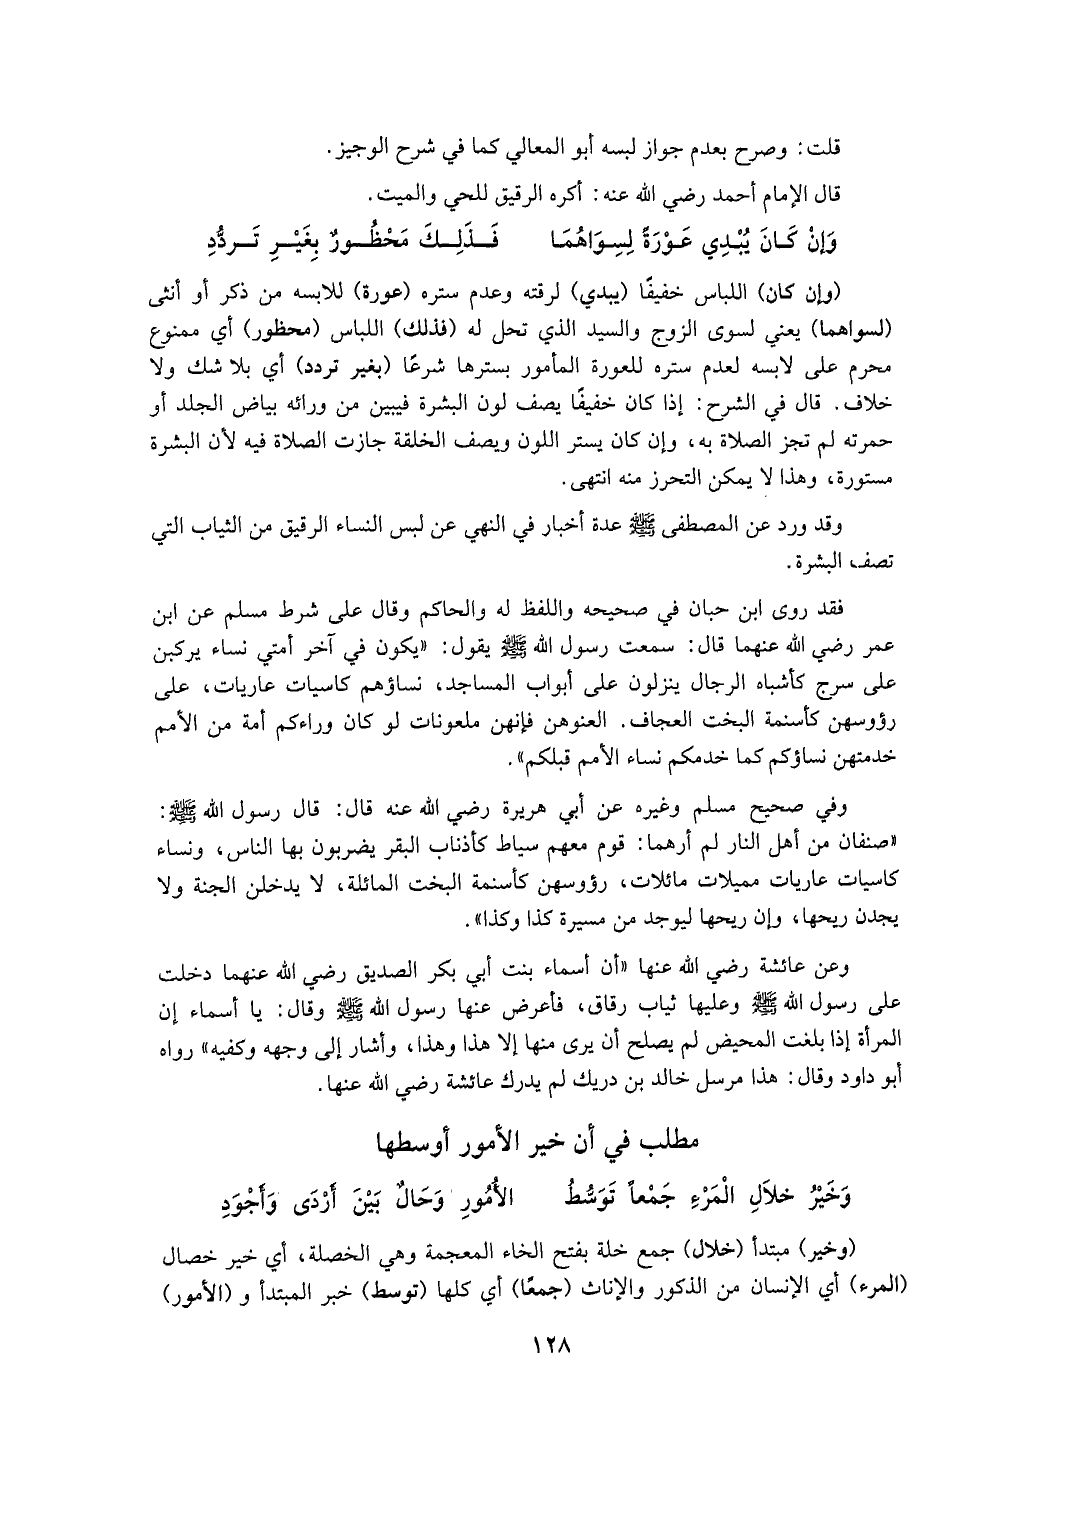 قلت: وصرح بعدم جواز لبسه أبو المعالي كما في شرح الوجيز.
قال الإمام أحمد رضي الله عنه: أكره الرقيق للحي والميت.
وَإِنْ كَــانَ يُبْـدِي عَـوْرَةً لِسِـوَاهُمَـا فَــذَلِــكَ مَحْظُــورٌ بِغَيْــرِ تَــردُّدِ
(وإن كان) اللباس خفيفًا (يبدي) لرقته وعدم ستره (عورة) للابسه من ذكر أو أنثى
(لسواهما) يعني لسوى الزوج والسيد الذي تحل له (فذلك) اللباس (محظور) أي ممنوع
محرم على لابسه لعدم ستره للعورة المأمور بسترها شرعًا (بغير تردد) أي بلا شك ولا
خلاف. قال في الشرح: إذا كان خفيفًا يصف لون البشرة فيبين من ورائه بياض الجلد أو
حمرته لم تجز الصلاة به، وإن كان يستر اللون ويصف الخلقة جازت الصلاة فيه لأن البشرة
مستورة، وهذا لا يمكن التحرز منه انتهى.
وقد ورد عن المصطفى ﷺ عدة أخبار في النهي عن لبس النساء الرقيق من الثياب التي
تصف البشرة.
فقد روى ابن حبان في صحيحه واللفظ له والحاكم وقال على شرط مسلم عن ابن
عمر رضي الله عنهما قال: سمعت رسول الله ﷺ يقول: «يكون في آخر أمتي نساء يركبن
على سرج كأشباه الرجال ينزلون على أبواب المساجد، نساؤهم كاسيات عاريات، على
رؤوسهن كأسنمة البخت العجاف. العنوهن فإنهن ملعونات لو كان وراءكم أمة من الأمم
خدمتهن نساؤكم كما خدمكم نساء الأمم قبلكم».
وفي صحيح مسلم وغيره عن أبي هريرة رضي الله عنه قال: قال رسول الله ﷺ:
«صنفان من أهل النار لم أرهما: قوم معهم سياط كأذناب البقر يضربون بها الناس، ونساء
كاسيات عاريات مميلات مائلات، رؤوسهن كأسنمة البخت المائلة، لا يدخلن الجنة ولا
يجدن ريحها، وإن ريحها ليوجد من مسيرة كذا وكذا».
وعن عائشة رضي الله عنها «أن أسماء بنت أبي بكر الصديق رضي الله عنهما دخلت
على رسول الله ﷺ وعليها ثياب رقاق، فأعرض عنها رسول الله ﷺ وقال: يا أسماء إن
المرأة إذا بلغت المحيض لم يصلح أن يرى منها إلا هذا وهذا، وأشار إلى وجهه وكفيه» رواه
أبو داود وقال: هذا مرسل خالد بن دريك لم يدرك عائشة رضي الله عنها.
مطلب في أن خير الأمور أوسطها
وَخَيْرُ خلاَلِ الْمَرْءِ جَمْعاً تَوَسُّطُ الأُمُورِ وَحَالٌ بَيْنَ أَرْدَى وَأَجْوَدِ
(وخير) مبتدأ (خلال) جمع خلة بفتح الخاء المعجمة وهي الخصلة، أي خير خصال
(المرء) أي الإنسان من الذكور والإناث (جمعًا) أي كلها (توسط) خبر المبتدأ و (الأمور)
١٢٨